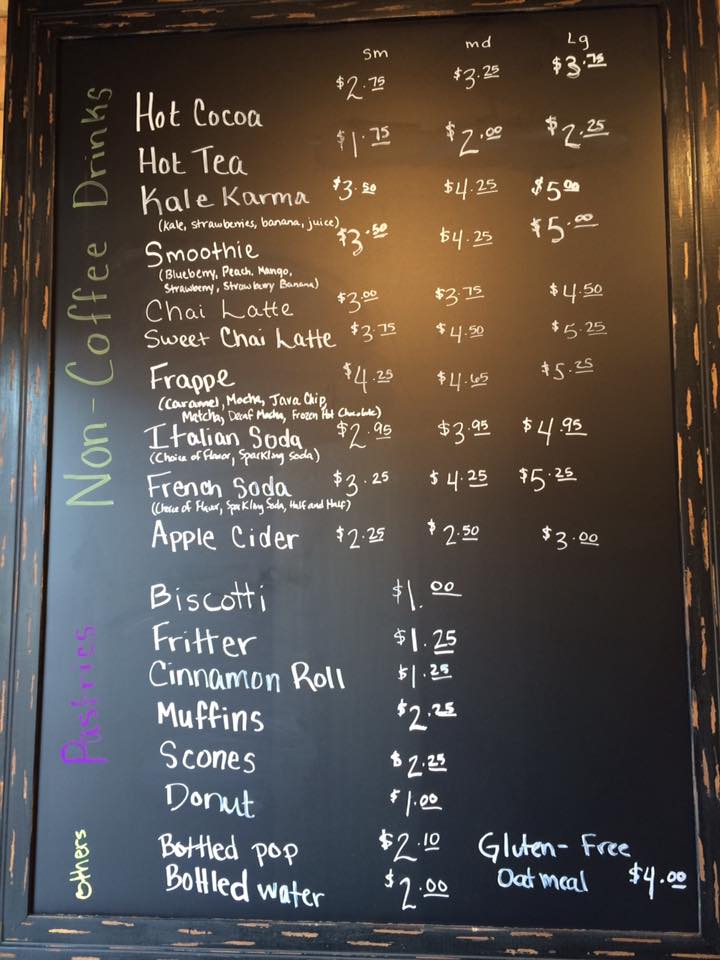 Sm md Lg
Non-Coffee Drinks
Hot Cocoa $2.75 $3.25 $3.75
Hot Tea $1.75 $2.00 $2.25
Kale Karma $3.50 $4.25 $5.00
(Kale, strawberries, banana, juice)
Smoothie $3.50 $4.25 $5.00
(Blueberry, Peach, Mango,
Strawberry, Strawberry Banana)
Chai Latte $3.00 $3.75 $4.50
Sweet Chai Latte $3.75 $4.50 $5.25
Frappe $4.25 $4.65 $5.25
(Caramel, Mocha, Java Chip,
Matcha, Decaf Mocha, Frozen Hot Chocolate)
Italian Soda $2.95 $3.95 $4.95
(Choice of Flavor, Sparkling Soda)
French Soda $3.25 $4.25 $5.25
(Choice of Flavor, Sparkling Soda, Half and Half)
Apple Cider $2.25 $2.50 $3.00
Pastries
Biscotti $1.00
Fritter $1.25
Cinnamon Roll $1.25
Muffins $2.25
Scones $2.25
Donut $1.00
others
Bottled pop $2.10
Bottled water $2.00
Gluten-Free
Oatmeal $4.00